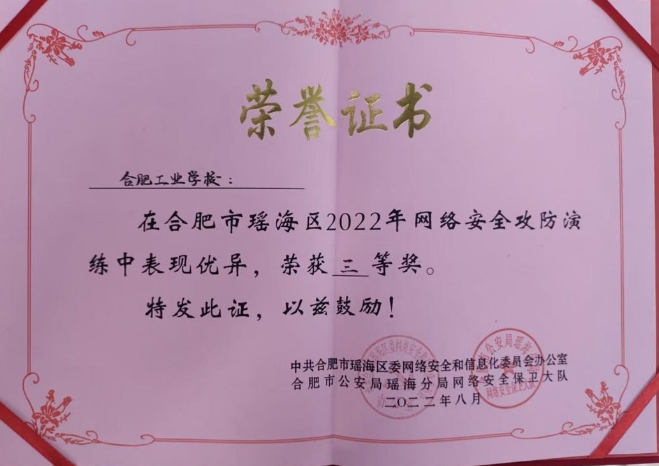 荣誉证书
合肥工业学校：
在合肥市瑶海区2022年网络安全攻防演
练中表现优异，荣获三等奖。
特发此证，以兹鼓励！
中共合肥市瑶海区委网络安全和信息化委员会办公室
合肥市公安局瑶海分局网络安全保卫大队
二〇二二年八月